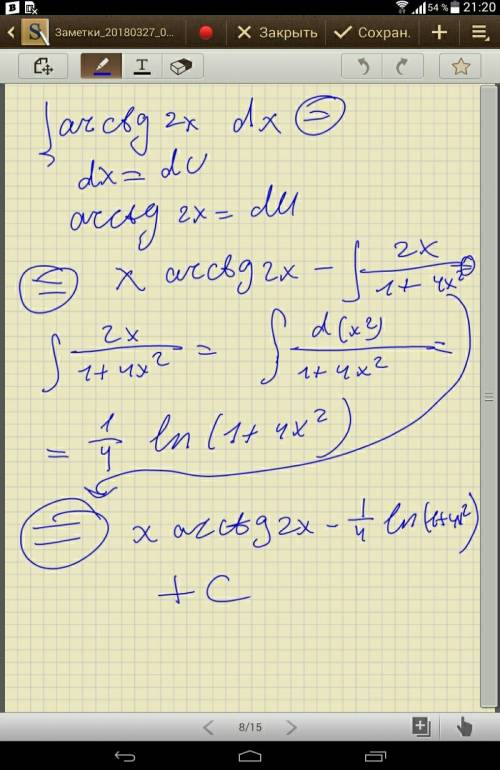 54 % 21:20
Заметки_20180327_0... Закрыть Сохран.
∫ arcctg 2x dx =
dx = dU
arcctg 2x = dU
= x arcctg 2x − ∫ 2x / (1 + 4x²) =
∫ 2x / (1 + 4x²) = ∫ d(x²) / (1 + 4x²) =
= 1/4 ln(1 + 4x²)
= x arcctg 2x − 1/4 ln(1+4x²)
+ C
8/15